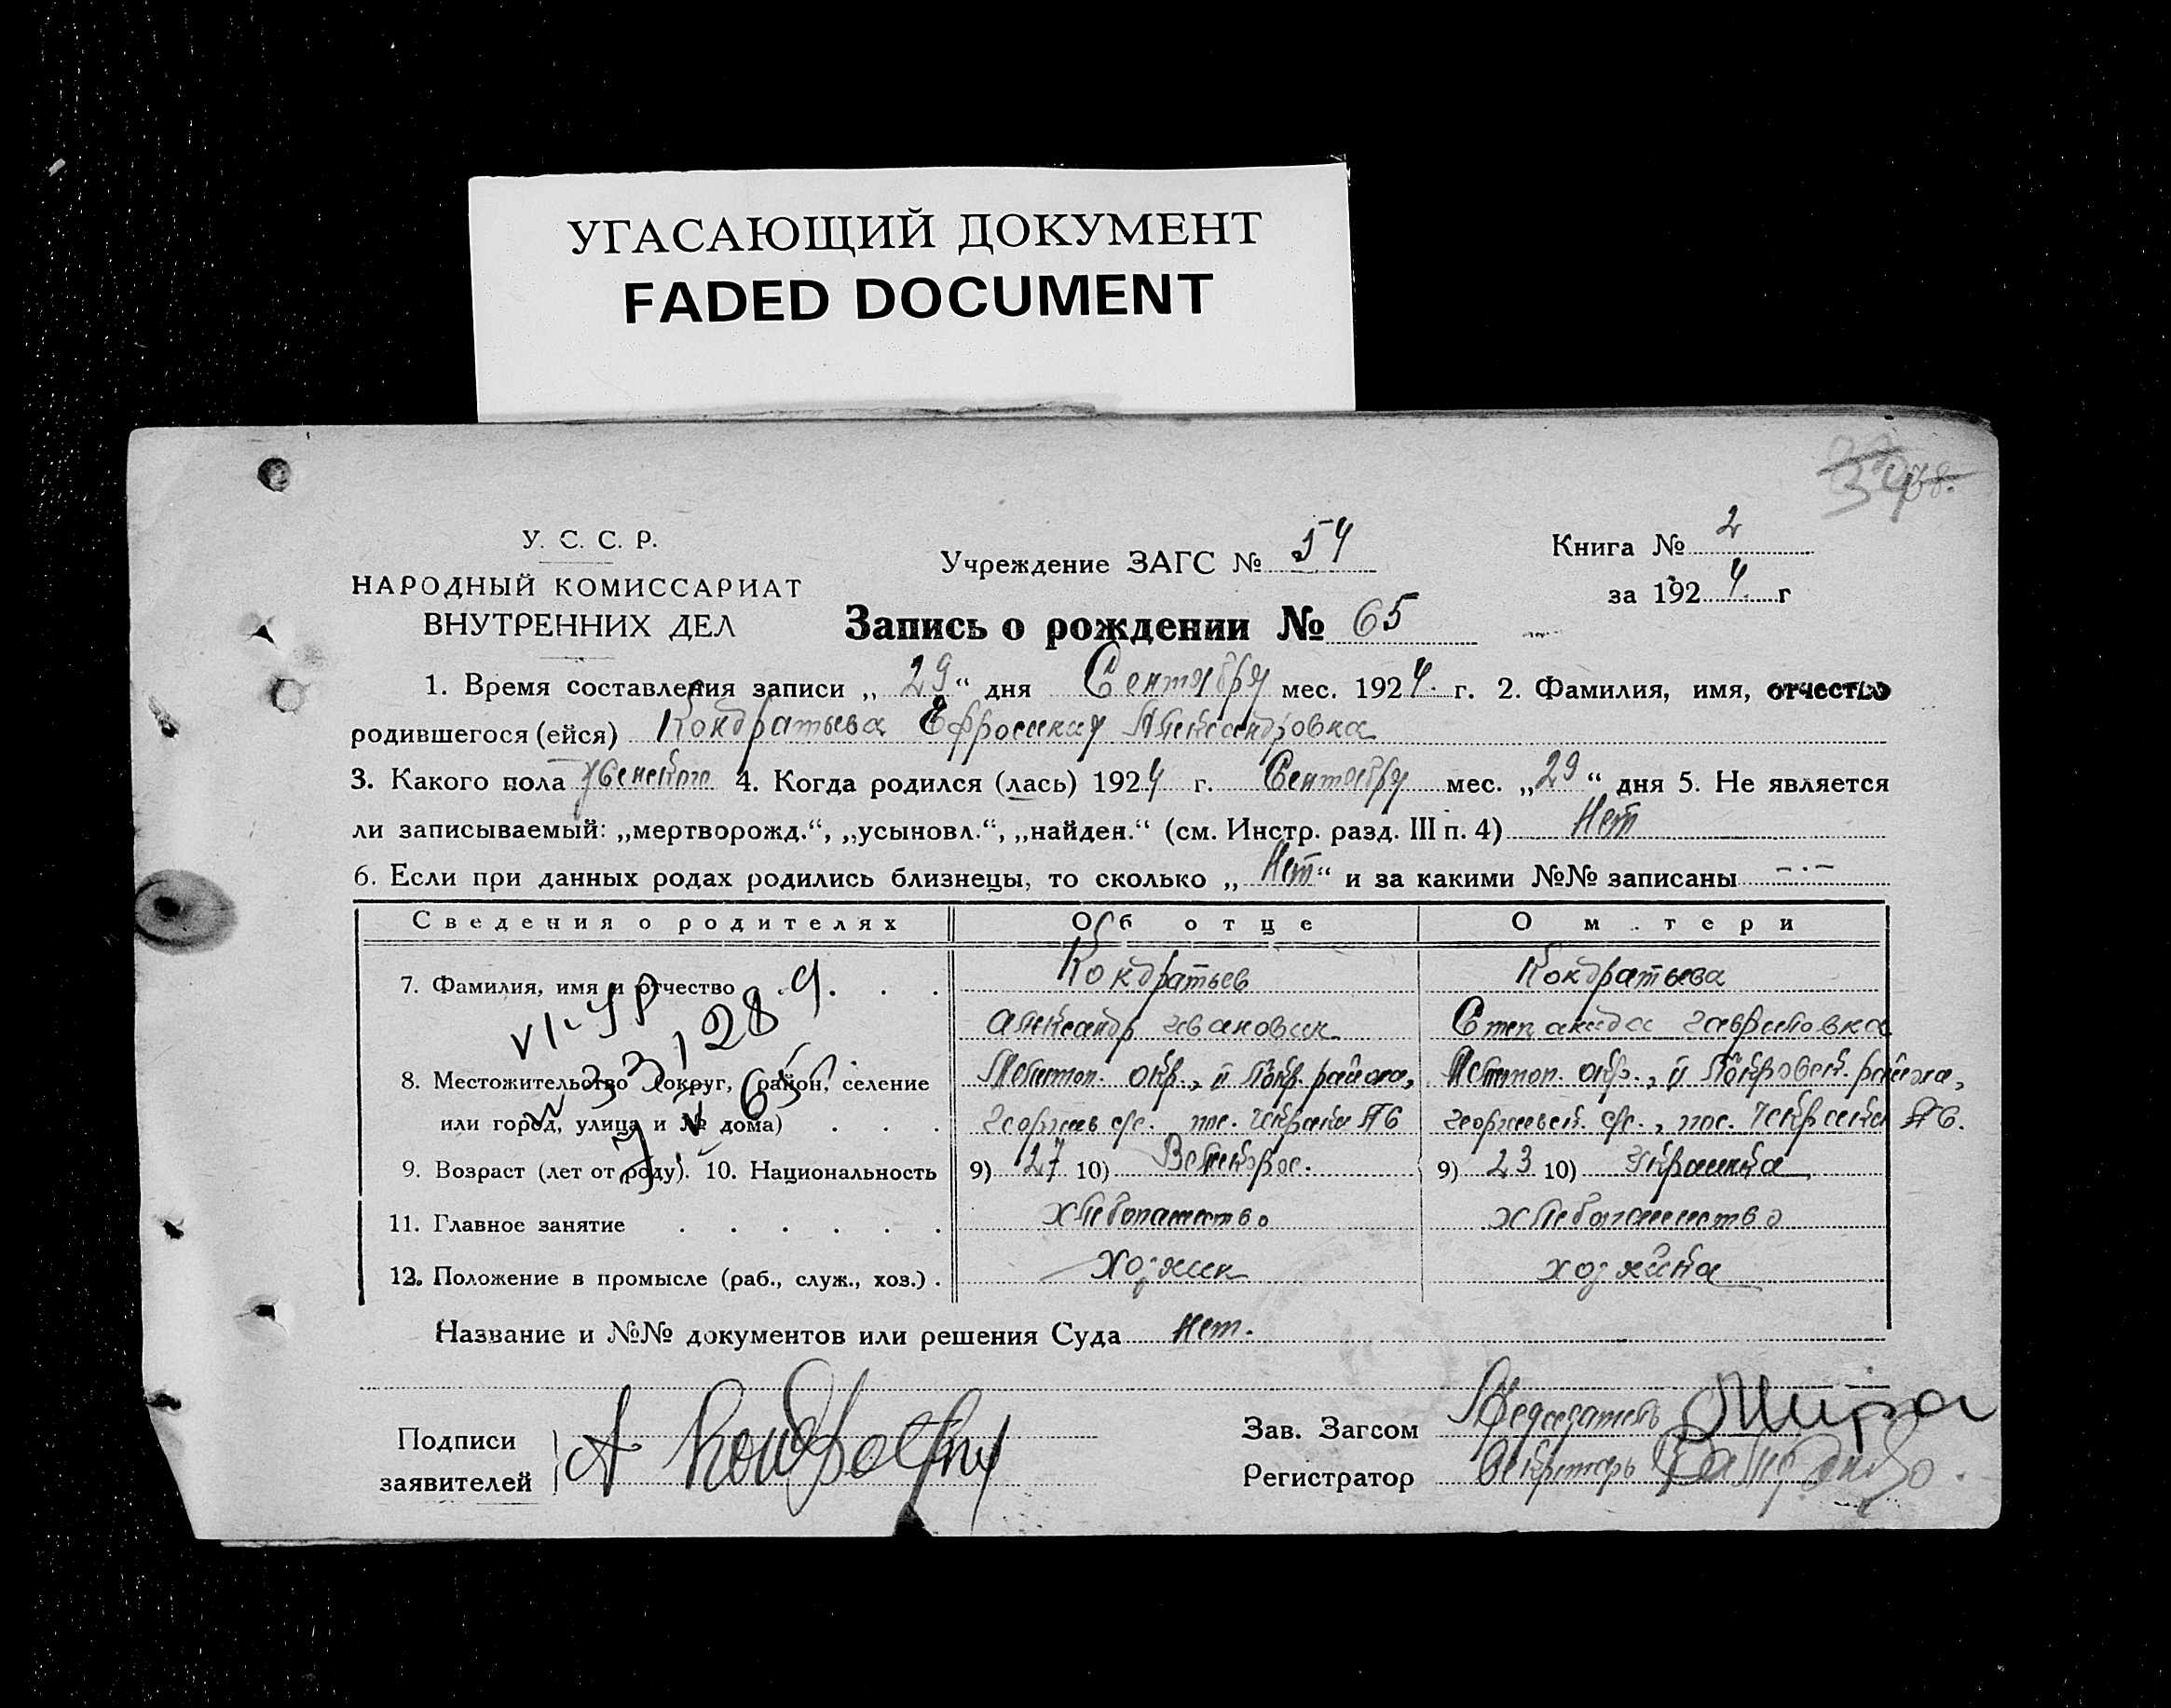 УГАСАЮЩИЙ ДОКУМЕНТ
FADED DOCUMENT
У. С. С. Р.
НАРОДНЫЙ КОМИССАРИАТ
ВНУТРЕННИХ ДЕЛ
Учреждение ЗАГС № 54
Книга № 2
за 1924 г
Запись о рождении № 65
1. Время составления записи „29“ дня Сентября мес. 1924 г. 2. Фамилия, имя, отчество
родившегося (ейся) Кондратьева Ефросиния Александровна
3. Какого пола женского 4. Когда родился (лась) 1924 г. Сентября мес. „29“ дня 5. Не является
ли записываемый: „мертворожд.“, „усыновл.“, „найден.“ (см. Инстр. разд. III п. 4) Нет
6. Если при данных родах родились близнецы, то сколько „Нет“ и за какими №№ записаны -·-
Сведения о родителях Об отце О м.тери
7. Фамилия, имя и отчество Кондратьев Кондратьева
Александр Иванович Степанида Гавриловна
8. Местожительство (округ, район, селение Мелитоп. окр., района, Мелитоп. окр., Покровск. района,
или город, улица и № дома) с/с. пос. №6 Георгиевск. с/с., пос. №6.
9. Возраст (лет от роду). 10. Национальность 9) 27 10) Великорос. 9) 23 10) Украинка
11. Главное занятие хлебопашество хлебопашество
12. Положение в промысле (раб., служ., хоз.) . хозяин хозяйка
Название и №№ документов или решения Суда нет.
Подписи
заявителей
А Кондратьев
Зав. Загсом Председатель
Регистратор Секретарь